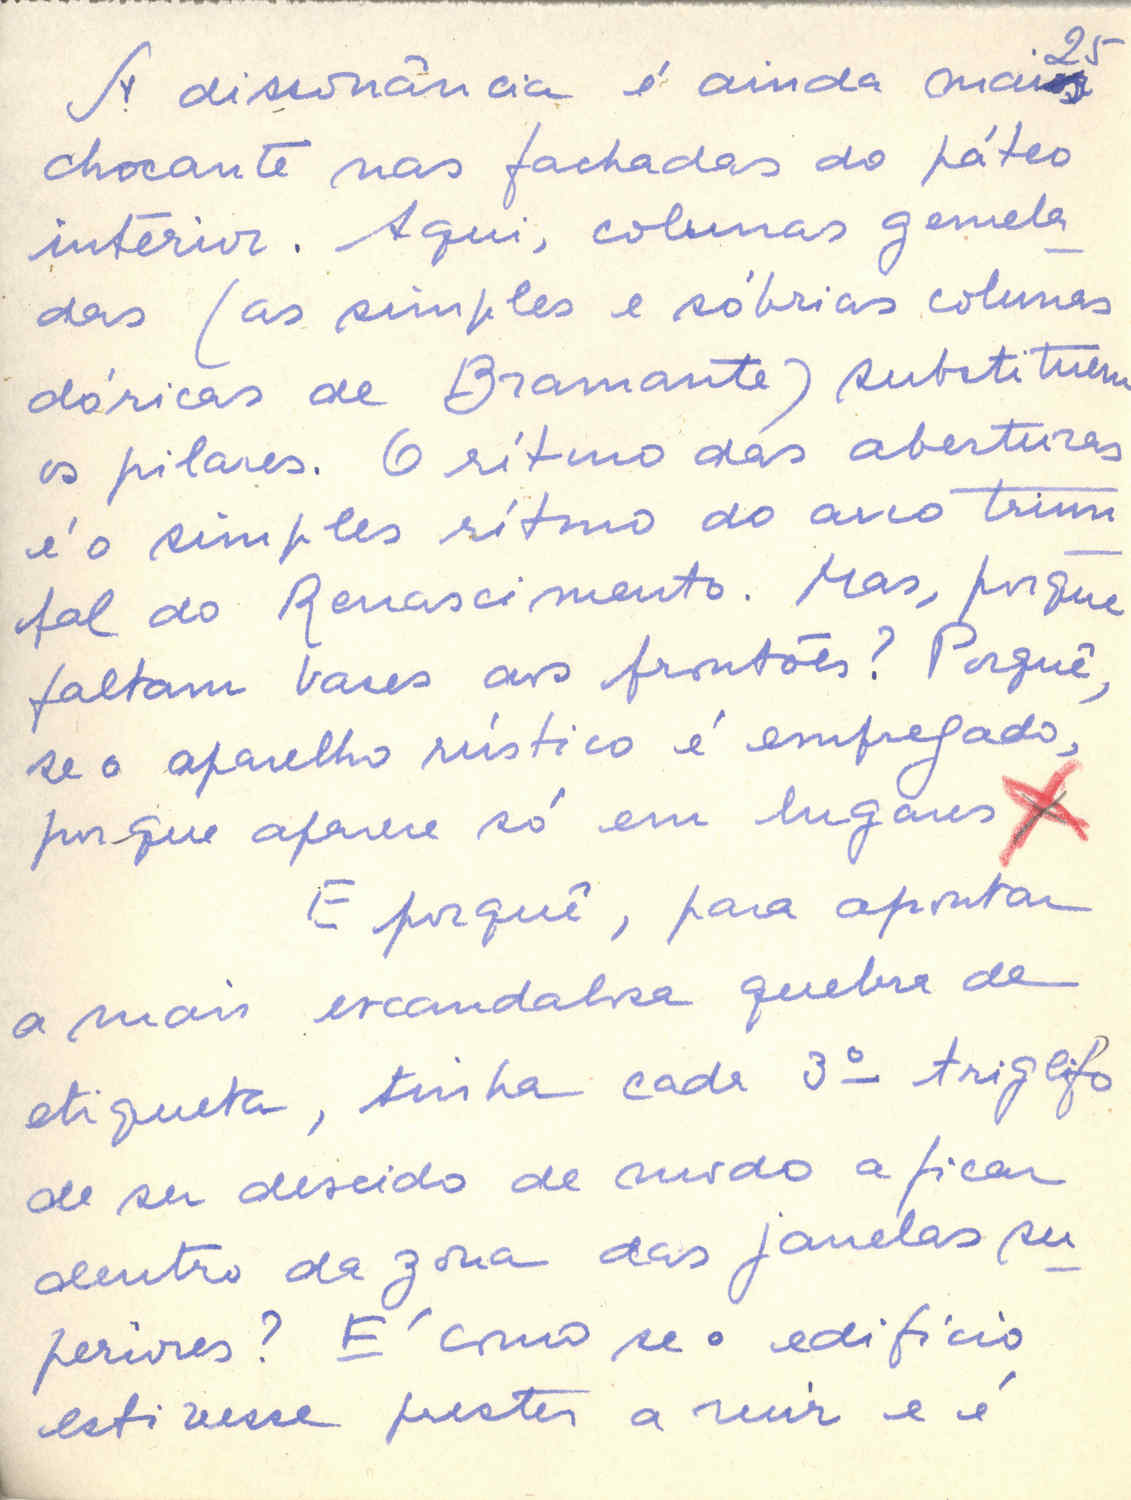 25
A dissonância é ainda mais
chocante nas fachadas do páteo
interior. Aqui, colunas gemela
das (as simples e sóbrias colunas
dóricas de Bramante) substituem
os pilares. O rítmo das aberturas
é o simples rítmo do arco triun
fal do Renascimento. Mas, porque
faltam bases aos frontões? Porquê,
se o aparelho rústico é empregado,
porque aparece só em lugares
E porquê, para apontar
a mais escandalosa quebra de
etiqueta, tinha cada 3º triglifo
de ser descido de modo a ficar
dentro da zona das janelas su
periores? É como se o edifício
estivesse prestes a ruir e é